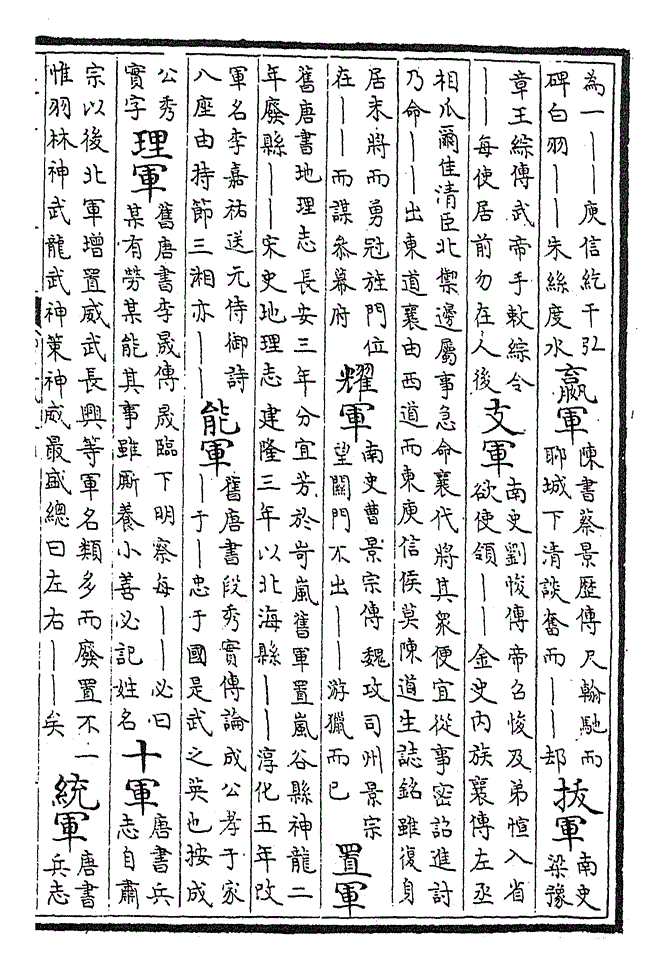 為一丨丨丨庾信紇干弘
碑白羽丨丨朱絲度水
嬴軍
陳書蔡景歷傳尺翰馳而
聊城下清談奮而丨丨却
拔軍
南史
梁豫
章王綜傳武帝手敕綜令
丨丨每使居前勿在人後
支軍
南史劉悛傳帝召悛及弟愃入省
欲使領丨丨金史内族襄傳左丞
相爪爾佳清臣北禦邊屬事急命襄代將其衆便宜從事密詔進討
乃命丨丨出東道襄由西道而東庾信侯莫陳道生誌銘雖復身
居末將而勇冠旌門位
在丨丨而謀參幕府
耀軍
南史曹景宗傳魏攻司州景宗
望關門不出丨丨游獵而已
置軍
舊唐書地理志長安三年分宜芳於岢嵐舊軍置嵐谷縣神龍二
年廢縣丨丨宋史地理志建隆三年以北海縣丨丨淳化五年改
軍名李嘉祐送元侍御詩
八座由持節三湘亦丨丨
能軍
舊唐書段秀實傳論成公孝于家
丨于丨忠于國是武之英也按成
公秀
實字
理軍
舊唐書李晟傳晟臨下明察每丨丨必曰
某有勞某能其事雖厮養小善必記姓名
十軍
唐書兵
志自肅
宗以後北軍增置威武長興等軍名類多而廢置不一
惟羽林神武龍武神策神威最盛總曰左右丨丨矣
統軍
唐書
兵志